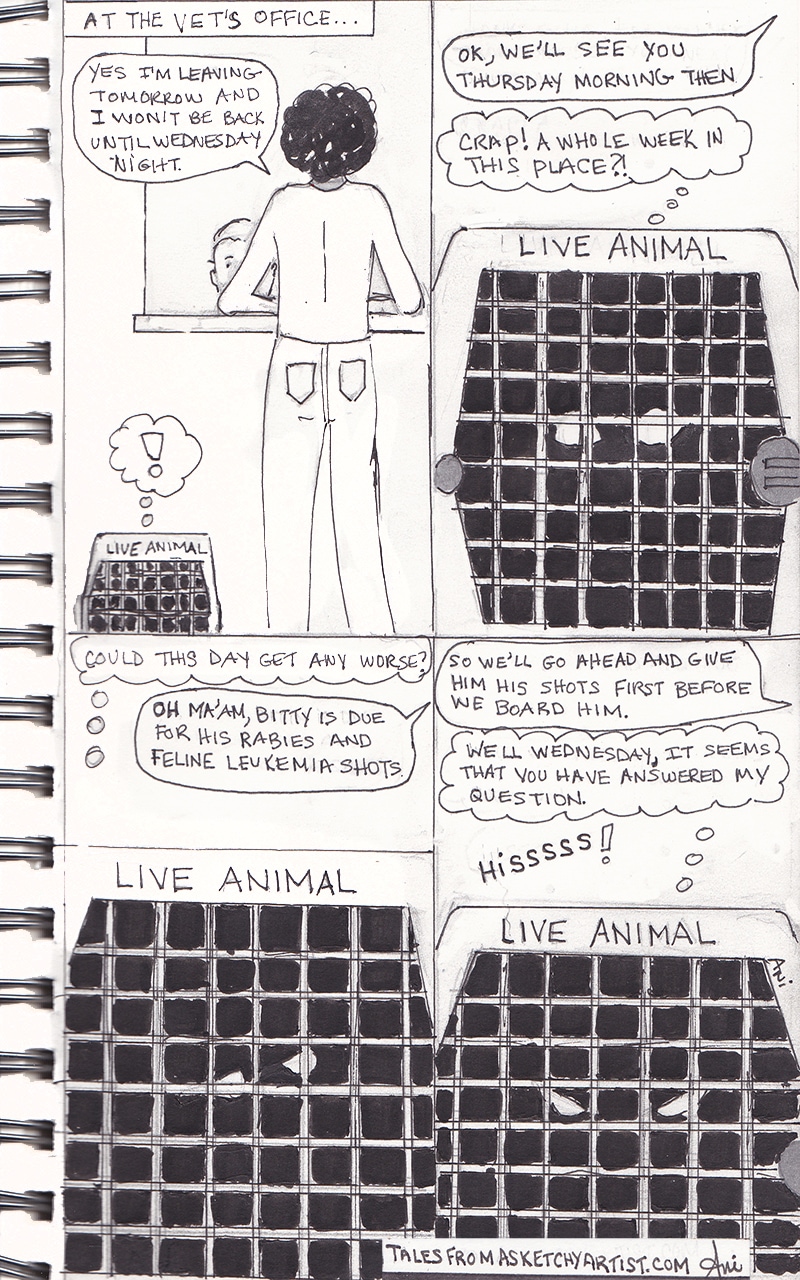 AT THE VET'S OFFICE...
YES I'M LEAVING
TOMORROW AND
I WON'T BE BACK
UNTIL WEDNESDAY
NIGHT.
!
LIVE ANIMAL
OK, WE'LL SEE YOU
THURSDAY MORNING THEN
CRAP! A WHOLE WEEK IN
THIS PLACE?!
LIVE ANIMAL
COULD THIS DAY GET ANY WORSE?
OH MA'AM, BITTY IS DUE
FOR HIS RABIES AND
FELINE LEUKEMIA SHOTS.
LIVE ANIMAL
SO WE'LL GO AHEAD AND GIVE
HIM HIS SHOTS FIRST BEFORE
WE BOARD HIM.
WELL WEDNESDAY, IT SEEMS
THAT YOU HAVE ANSWERED MY
QUESTION.
HiSSSSS!
LIVE ANIMAL
Ani.
TALESFROMASKETCHYARTIST.COM Ani